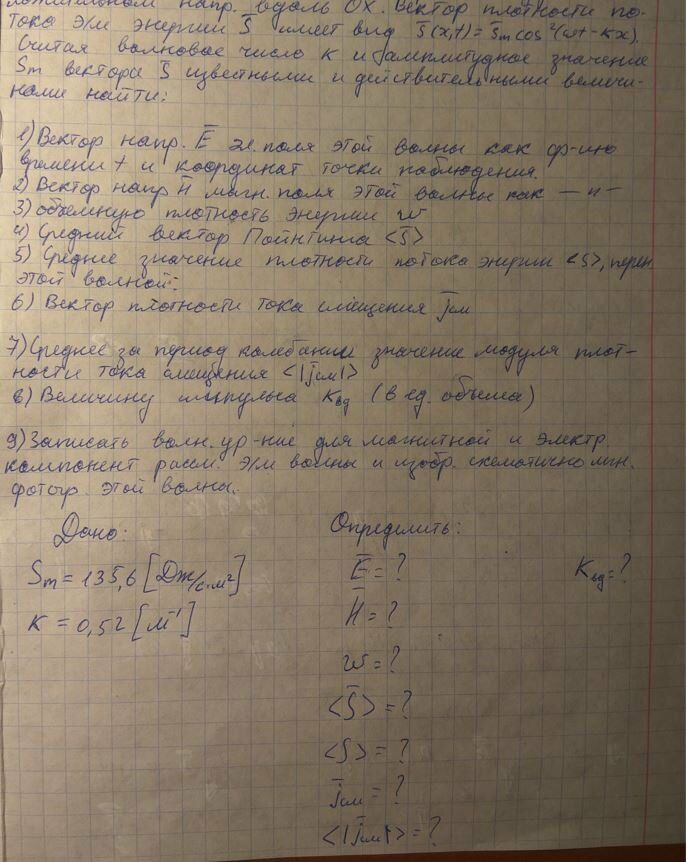 напр. вдоль OX. Вектор плотности по-
тока э/м энергии S̄ имеет вид S̄(x,t)=S̄m cos²(ωt-kx).
Считая волновое число k и амплитудное значение
Sm вектора S̄ известными и действительными величи-
нами найти:
1) Вектор напр. Ē эл. поля этой волны как ф-ию
времени t и координат точки наблюдения.
2) Вектор напр H̄ магн. поля этой волны как — п —
3) объемную плотность энергии w
4) Средний вектор Пойнтинга <S̄>
5) Среднее значение плотности потока энергии <S>, перен
этой волной.
6) Вектор плотности тока смещения j̄см
7) Среднее за период колебаний значение модуля плот-
ности тока смещения <|j̄см|>
8) Величину импульса Kед (в ед. объема)
9) Записать волн. ур-ние для магнитной и электр.
компонент рассм. э/м волны и изобр. схематично мгн.
фотогр. этой волны.
Дано: Определить:
Sm = 135,6 [Дж/с·м²] Ē = ? Kед = ?
k = 0,52 [м⁻¹] H̄ = ?
w = ?
<S̄> = ?
<S> = ?
j̄см = ?
<|j̄см|> = ?